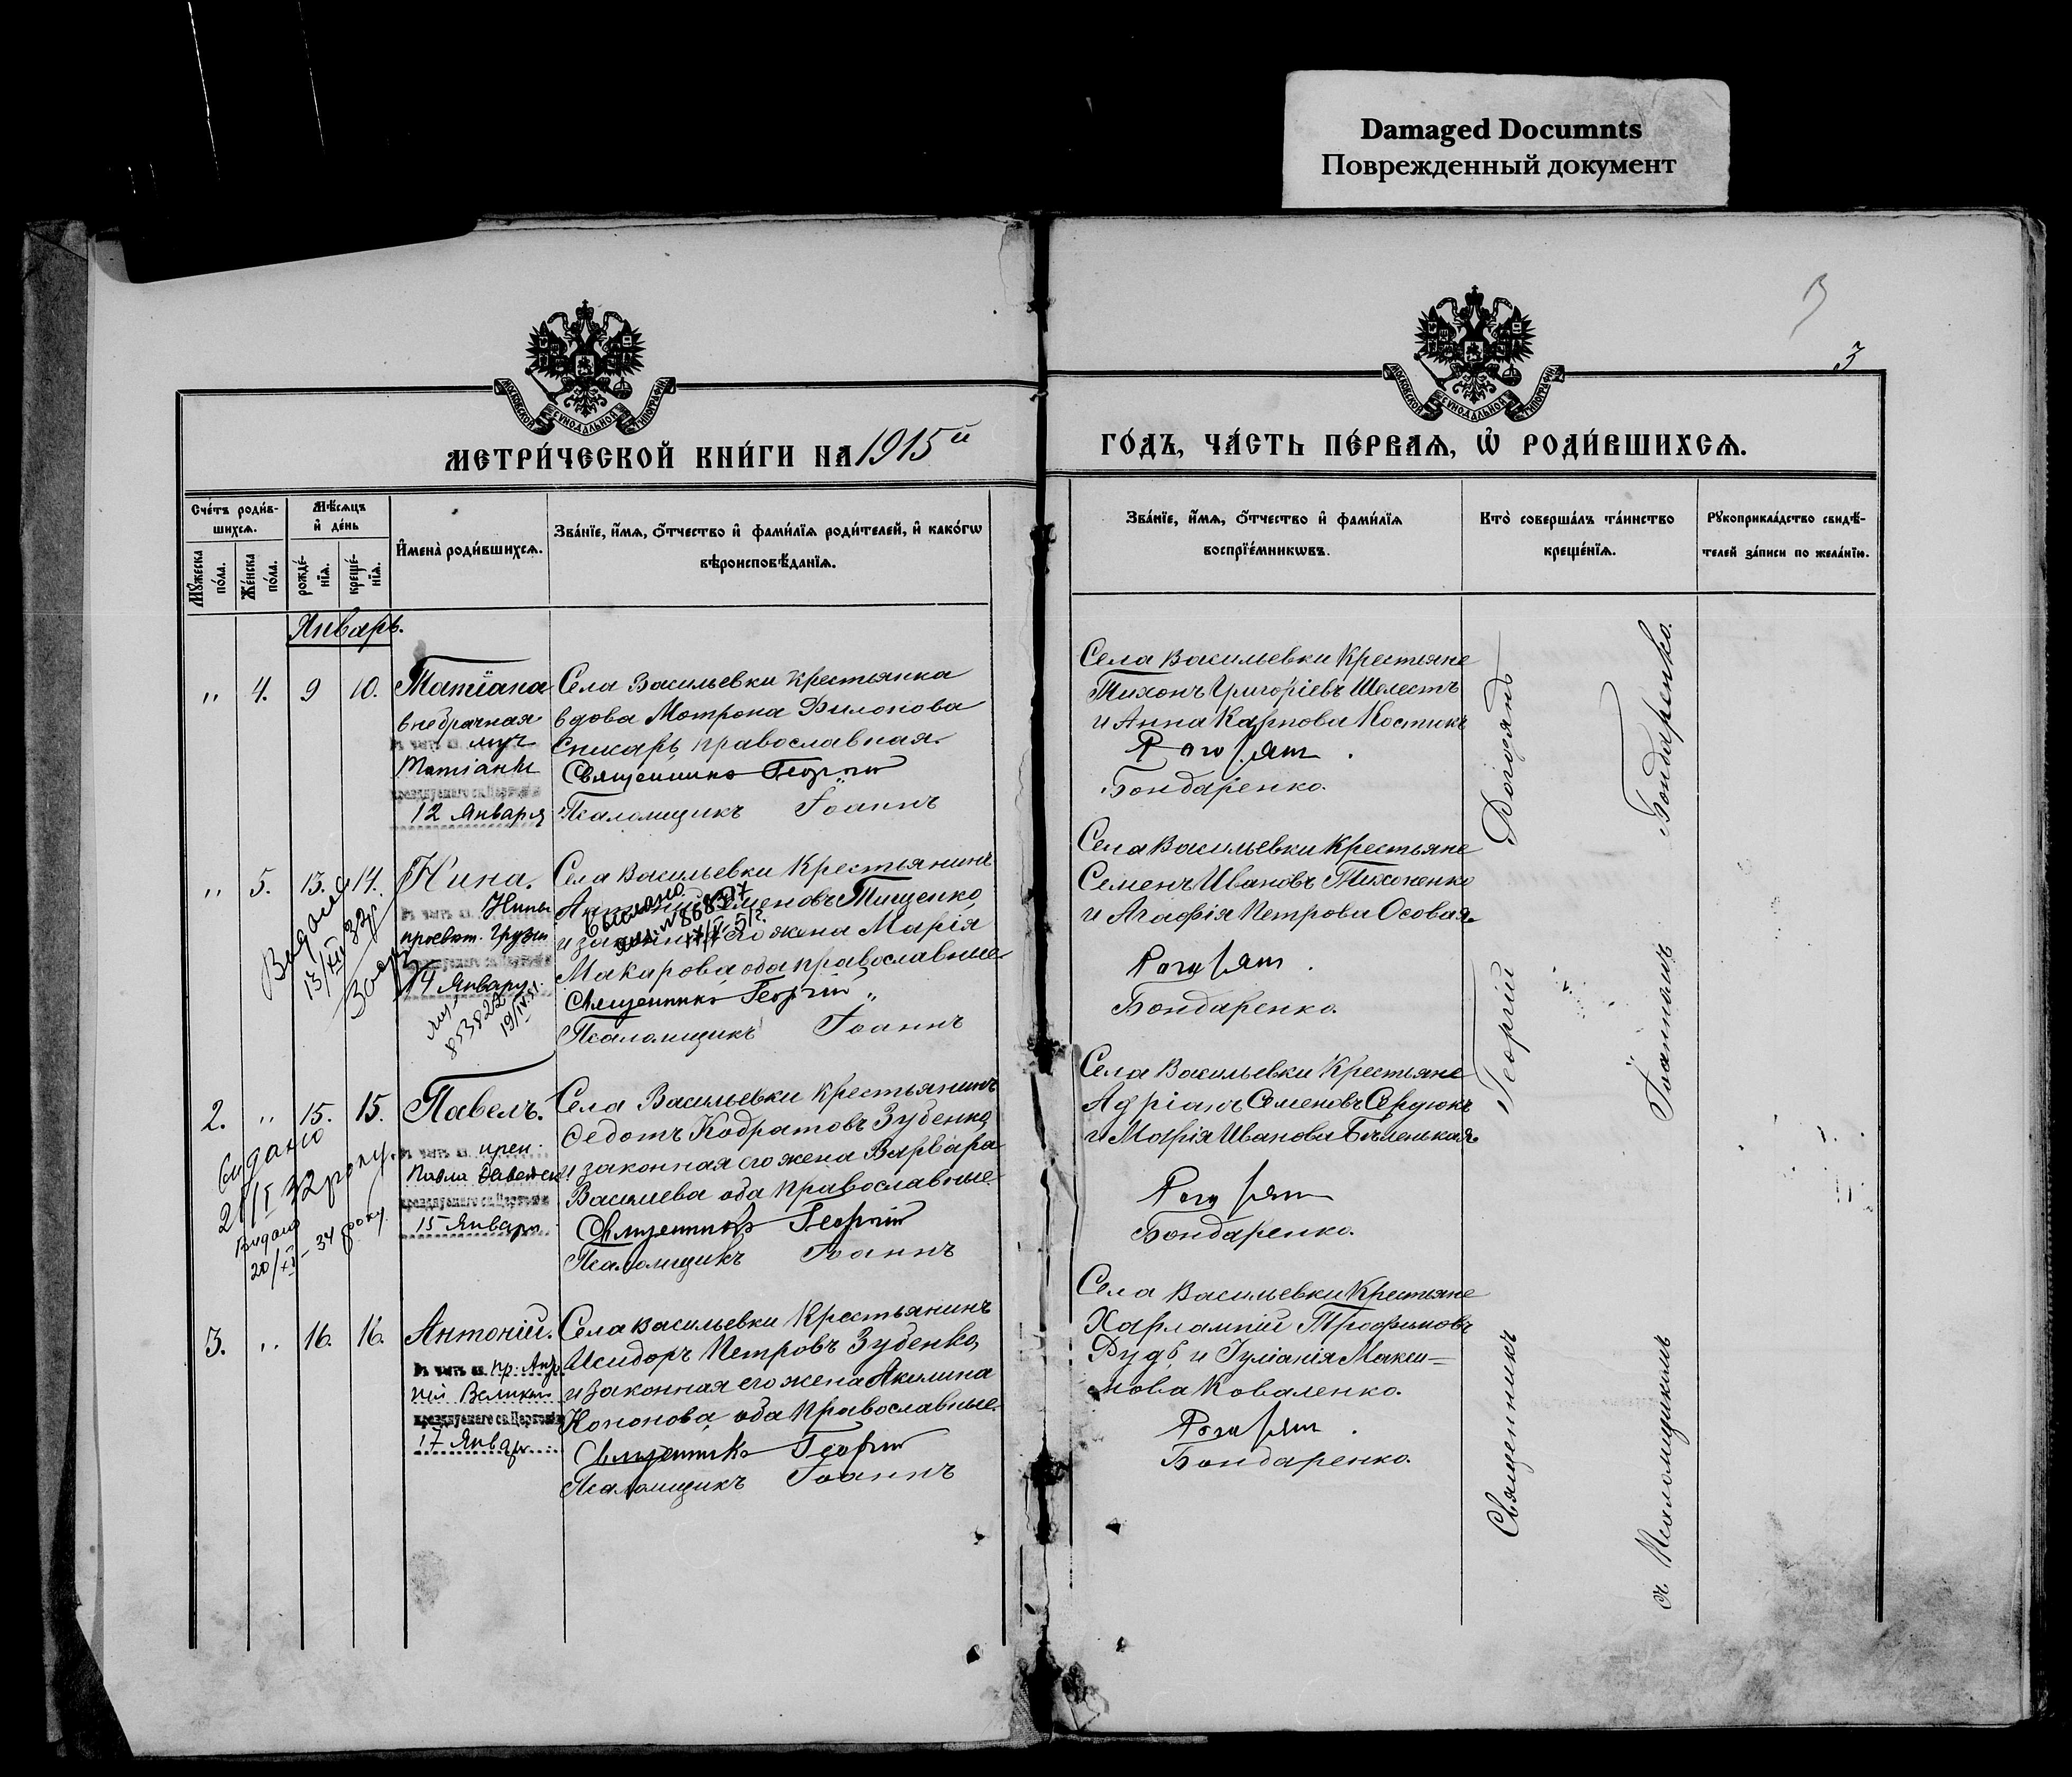 Damaged Documnts
Поврежденный документ
3
МОСКОВСКОЙ СУНОДАЛЬНОЙ ТИПОГРАФІИ
МОСКОВСКОЙ СУНОДАЛЬНОЙ ТИПОГРАФІИ
МЕТРИ́ЧЕСКОЙ КНИ́ГИ НА 1915й
ГО́ДЪ, ЧА́СТЬ ПЕ́РВАѦ, Ѡ҆ РОДИ́ВШИХСѦ.
Сче́тъ роди́в-
шихсѧ.
Мꙋ́жеска
по́ла.
Же́нска
по́ла.
Мѣ́сѧцъ
и҆ де́нь
рожде́-
нїѧ.
креще́-
нїѧ.
И҆мена̀ роди́вшихсѧ.
Зва́нїе, и҆́мѧ, ѻ҆́тчество и҆ фами́лїѧ роди́телей, и҆ како́гѡ
вѣроисповѣ́данїѧ.
Зва́нїе, и҆́мѧ, ѻ҆́тчество и҆ фами́лїѧ
воспрїе́мникѡвъ.
Кто̀ соверша́лъ та́инство
креще́нїѧ.
Рꙋкоприкла́дство свидѣ́-
телей за́писи по жела́нїю.
Январь.
" 4. 9 10. Татіана
внебрачная
въ честь св. муч
Татіаны
празднуемаго св. Церковію
12 Января
Села Васильевки крестьянка
вдова Мотрона Филонова
Снисарь, православная.
Священникъ Георгій
Псаломщикъ Іоаннъ
Села Васильевки крестьяне
Тихонъ Григоріевъ Шелестъ
и Анна Карпова Костюкъ
Бондаренко.
" 5. 13. 14. Нина.
въ честь св. Нины
просвѣт. Грузіи
празднуемаго св. Церковію
14 Января
853822
19/IV 51.
13/XII 33 р.
Села Васильевки крестьянинъ
Семеновъ Тищенко,
и законная его жена Марія
Макарова, оба православные
Священникъ Георгій
Псаломщикъ Іоаннъ
Выслано
17/V. 51 г.
Села Васильевки крестьяне
Семенъ Ивановъ Тихоненко
и Агафія Петрова Осовая.
Бондаренко.
2. " 15. 15. Павелъ.
въ честь св. преп.
Павла Фивейск
празднуемаго св. Церковію
15 Января
видано
21/I 32 року.
Видано
20/XI - 34 року
Села Васильевки крестьянинъ
Федотъ Кодратовъ Зубенко,
и законная его жена Варвара
Васильева оба православные
Священникъ Георгій
Псаломщикъ Іоаннъ
Села Васильевки крестьяне
Адріанъ Семеновъ Сердюкъ
и Марія Иванова Бѣленькая.
Бондаренко.
3. " 16. 16. Антоній.
въ честь св. пр. Анто
нія Великаго
празднуемаго св. Церковію
17 Января
Села Васильевки крестьянинъ
Исидоръ Петровъ Зубенко,
и законная его жена Акилина
Кононова, оба православные
Священникъ Георгій
Псаломщикъ Іоаннъ
Села Васильевки крестьяне
Харлампій Трофимовъ
Рудь и Іуліанія Макси-
мова Коваленко.
Бондаренко.
Священникъ Георгій
съ Псаломщикомъ Іоанномъ Бондаренко.